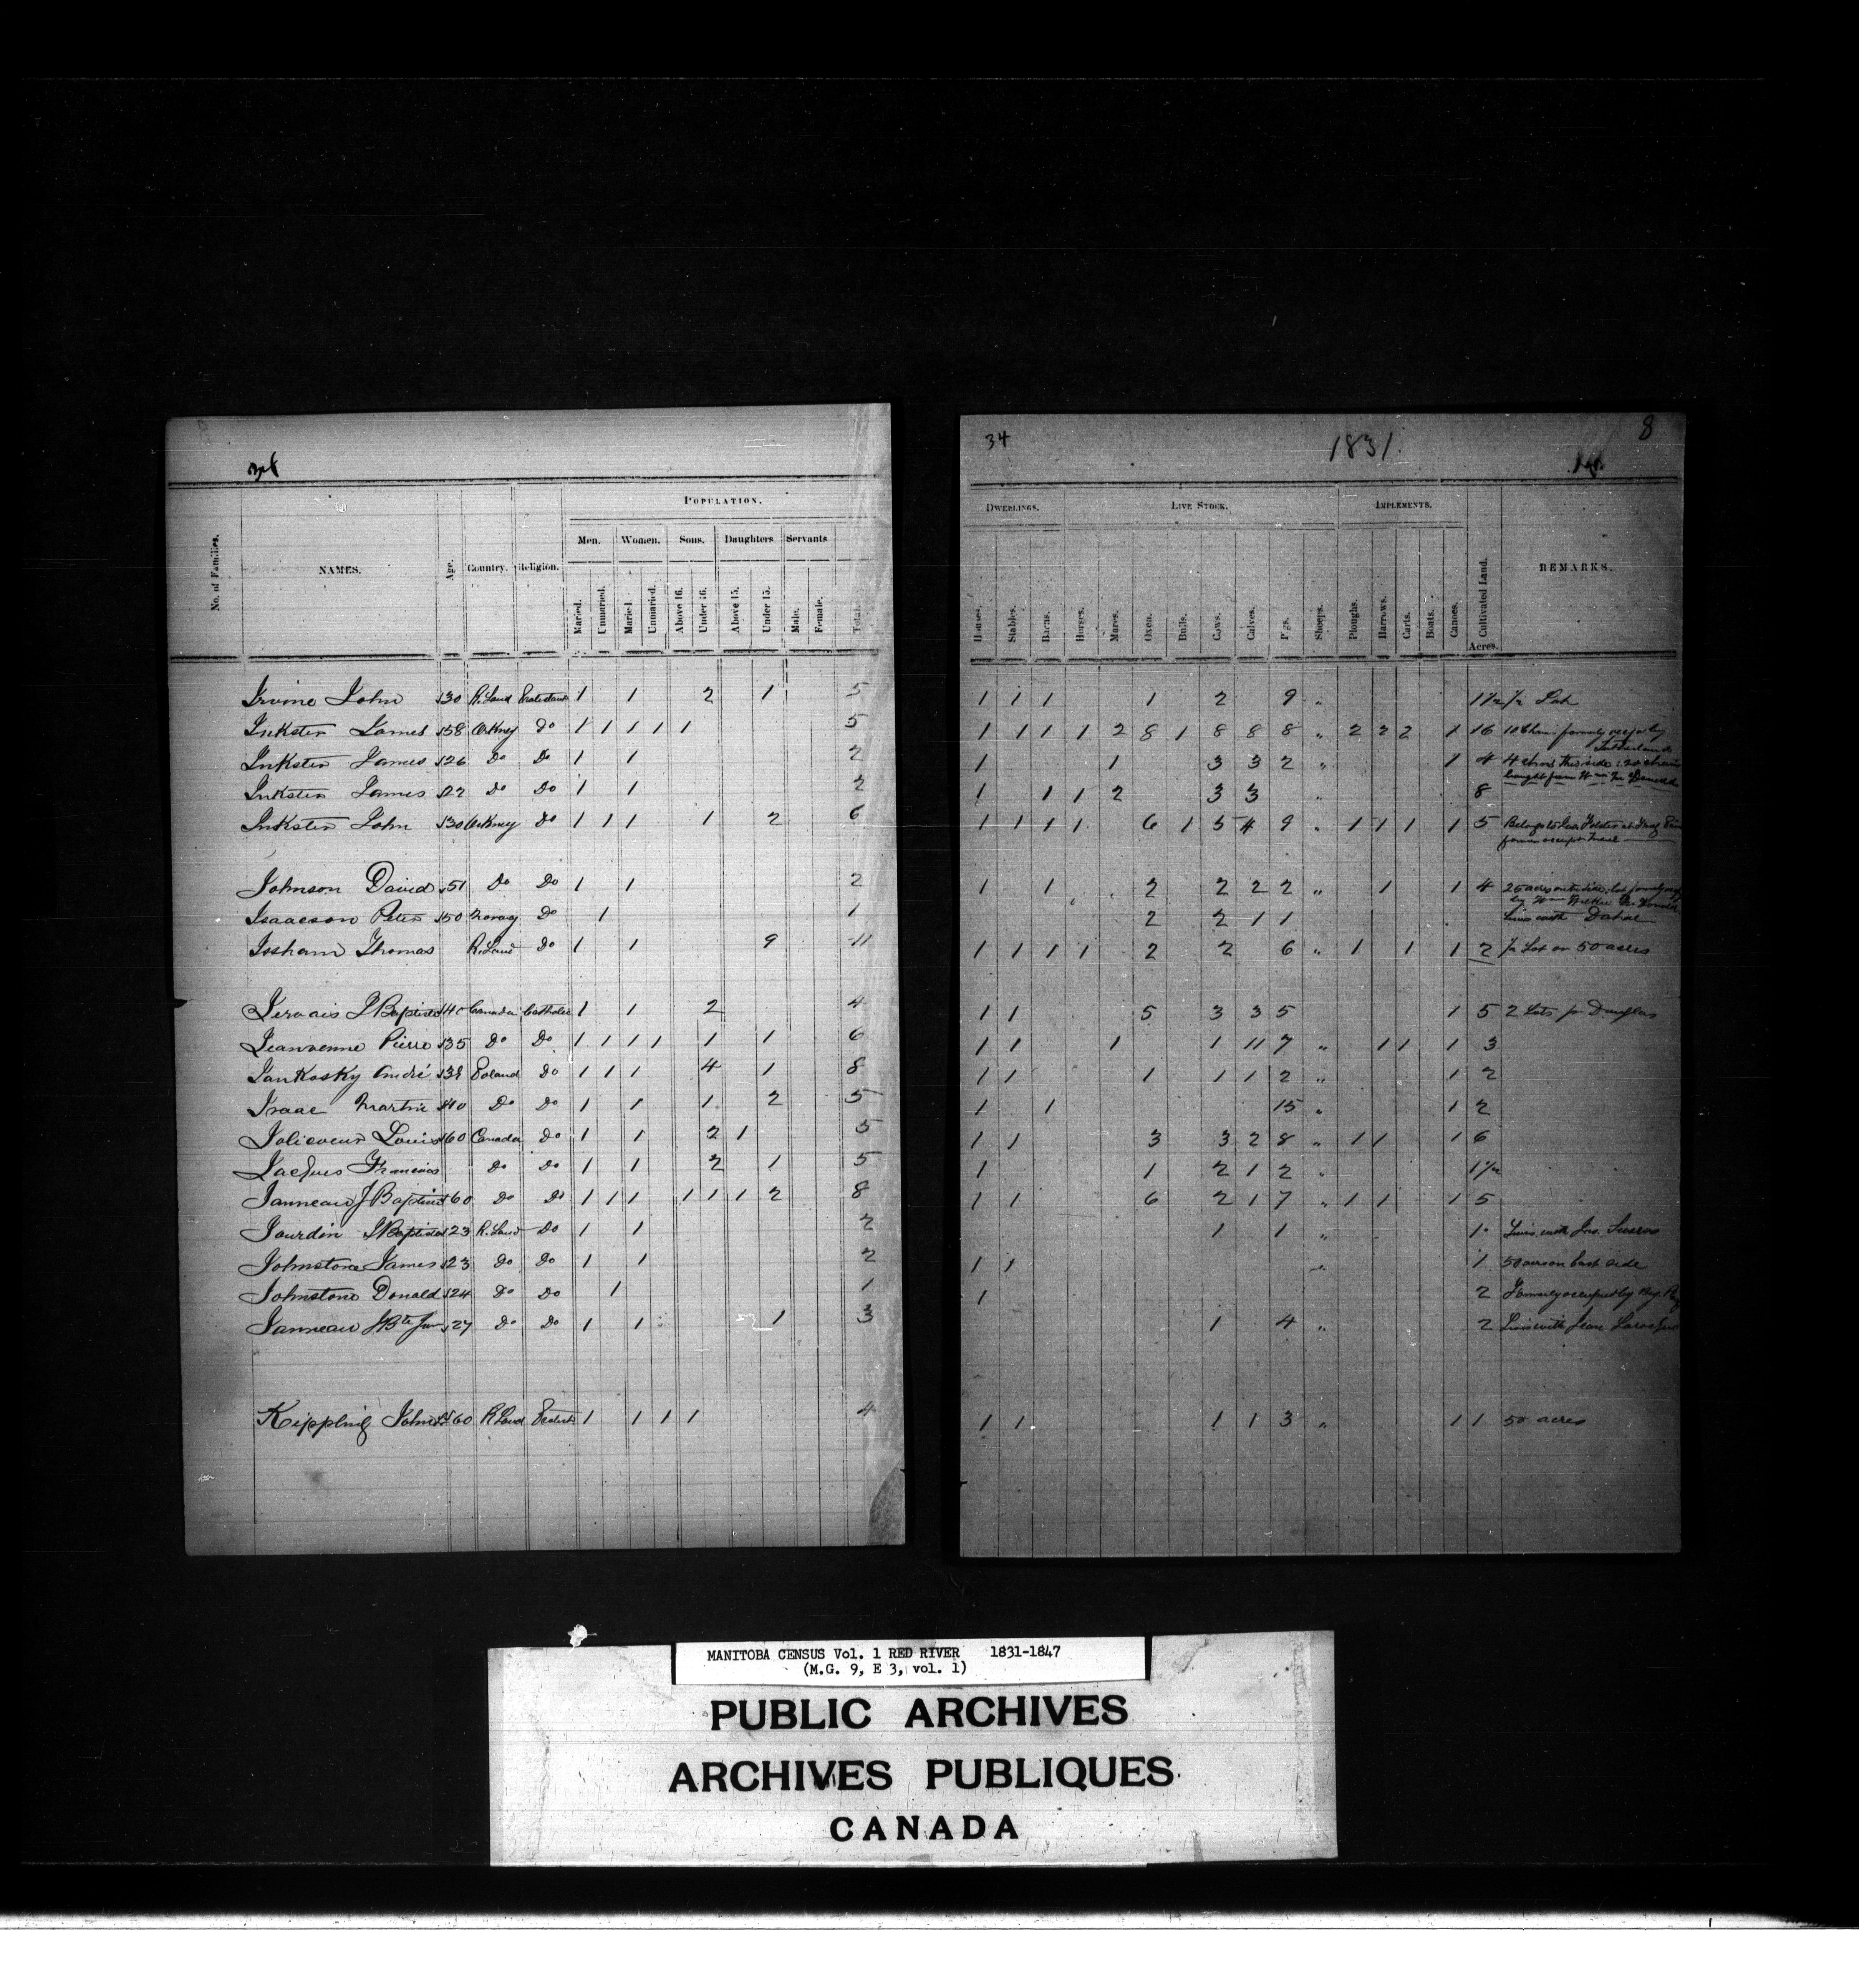 34 1831. 8
POPULATION.
DWELLINGS. LIVE STOCK. IMPLEMENTS.
No. of Families. NAMES. Age. Country. Religion. Men. Women. Sons. Daughters Servants
Married. Unmarried. Married Unmarried. Above 16. Under 16. Above 15. Under 15. Male. Female. Total.
Houses. Stables. Barns. Horses. Mares. Oxen. Bulls. Cows. Calves. Pigs. Sheeps. Ploughs. Harrows. Carts. Boats. Canoes. Cultivated Land. Acres. REMARKS.
Irvine John 30 R. Land Protestant 1 1 2 1 5 1 1 1 1 2 9 " 1 1/2 1/2 Lot
Inkster James 58 Orkney Do 1 1 1 1 1 5 1 1 1 1 2 8 1 8 8 8 " 2 2 2 1 16 formerly by
Sutherland
Inkster James 26 Do Do 1 1 2 1 1 3 3 2 " 1 4 4 chns this side : 20 chains
bought from Wm
Inkster James 27 Do Do 1 1 2 1 1 1 2 3 3 " 8
Inkster John 30 Orkney Do 1 1 1 1 2 6 1 1 1 1 6 1 5 4 9 " 1 1 1 1 5 Belongs to
former
Johnson David 51 Do Do 1 1 2 1 1 2 2 2 2 " 1 1 4 25 acres lot formerly
by Wm
Isaacson Peter 50 Norway Do 1 1 2 2 1 1 Lives with Dahal
Issham Thomas R. Land Do 1 1 9 11 1 1 1 1 2 2 6 " 1 1 1 2 1/2 Lot or 50 acres
Jervais J Baptiste 40 Canada Catholic 1 1 2 4 1 1 5 3 3 5 1 5 2 Lots Douglas
Jeanvenne Pierre 35 Do Do 1 1 1 1 1 1 6 1 1 1 1 11 7 " 1 1 1 3
Jankosky André 38 Poland Do 1 1 1 4 1 8 1 1 1 1 1 2 " 1 2
Isaac Martin 40 Do Do 1 1 1 2 5 1 1 15 " 1 2
Jolicoeur Louis 60 Canada Do 1 1 2 1 5 1 1 3 3 2 8 " 1 1 1 6
Jacques Francois Do Do 1 1 2 1 5 1 1 2 1 2 " 1 1/2
Janneau J Baptiste 60 Do Do 1 1 1 1 1 1 2 8 1 1 6 2 1 7 " 1 1 1 5
Jourdin J Baptiste 23 R. Land Do 1 1 2 1 1 " 1 Lives with Jno.
Johnstone James 23 Do Do 1 1 2 1 1 " 1 50 acres on east side
Johnstone Donald 24 Do Do 1 1 1 2 Formerly occupied by
Janneau J Bte Junr 27 Do Do 1 1 1 3 1 4 " 2 Lives with Jean
Kippling John 60 R Land Protest 1 1 1 1 4 1 1 1 1 3 " 1 1 50 acres
MANITOBA CENSUS Vol. 1 RED RIVER 1831-1847
(M.G. 9, E 3, vol. 1)
PUBLIC ARCHIVES
ARCHIVES PUBLIQUES
CANADA